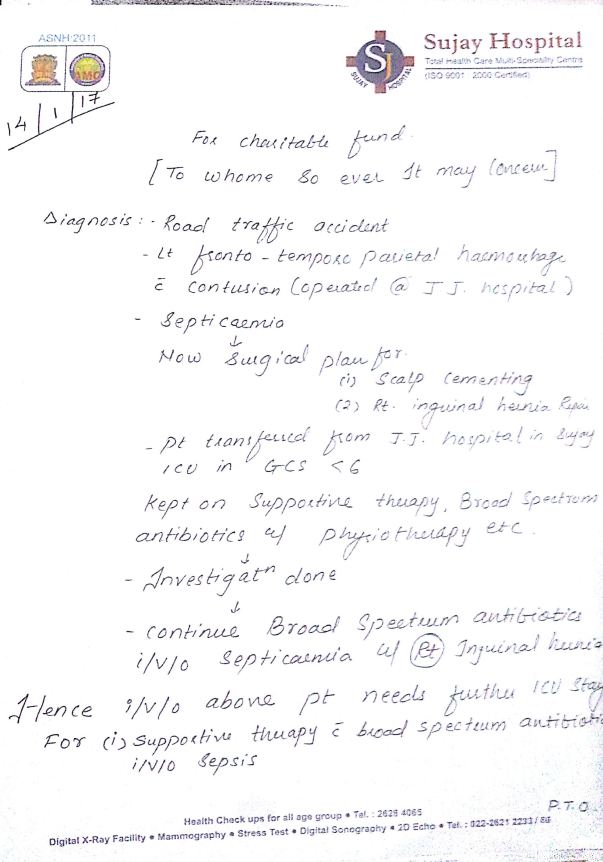 ASNH:2011
AMC
SJ
SUJAY HOSPITAL
Sujay Hospital
Total Health Care Multi-Speciality Centre
(ISO 9001 : 2000 Certified)
14/1/17
For charitable fund.
[To whome so ever It may Concern]
Diagnosis :- Road traffic accident
- Lt fronto-temporo parietal haemorrhage
c̄ contusion (operated @ J.J. hospital)
- Septicaemia
↓
Now surgical plan for.
(i) Scalp cementing
(2) Rt. inguinal hernia Repair
- pt transferred from J.J. hospital in Sujay
ICU in GCS <6
Kept on supportive therapy, Broad Spectrum
antibiotics w/ physiotherapy etc.
↓
- Investigatn done
↓
- continue Broad Spectrum antibiotics
i/v/o septicaemia w/ Rt Inguinal hernia
Hence i/v/o above pt needs further ICU stay
For (i) Supportive therapy c̄ broad spectrum antibiotic
i/v/o sepsis
P.T.O.
Health Check ups for all age group • Tel. : 2626 4065
Digital X-Ray Facility • Mammography • Stress Test • Digital Sonography • 2D Echo • Tel. : 022-2621 2233 / 86